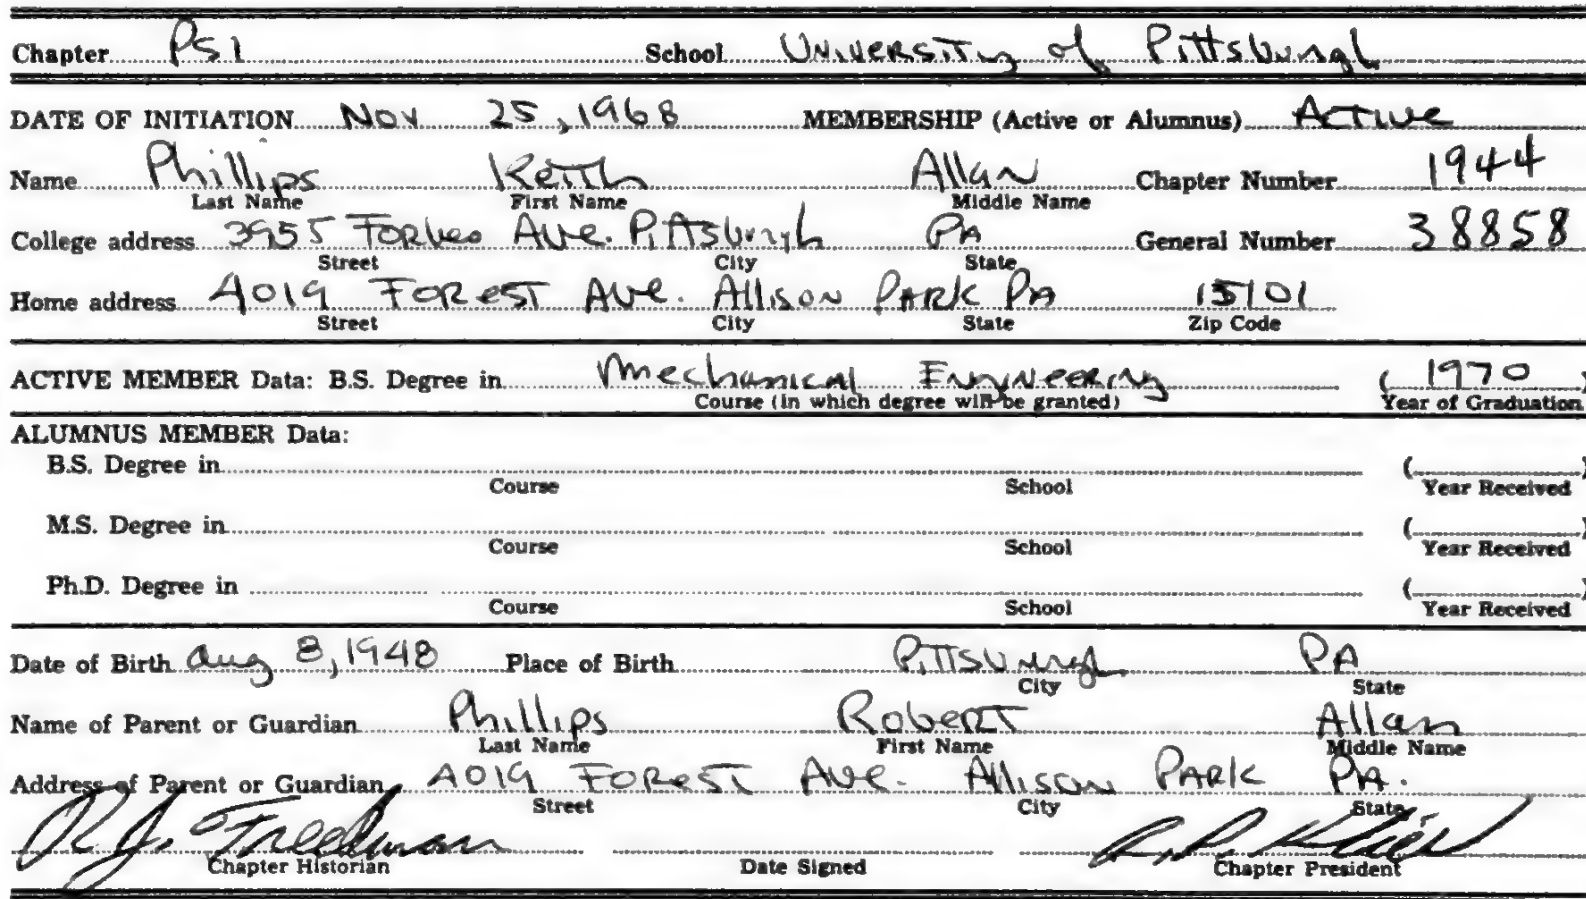 Chapter PSI School University of Pittsburgh
DATE OF INITIATION Nov 25, 1968 MEMBERSHIP (Active or Alumnus) Active
Name Phillips Keith Allan Chapter Number 1944
Last Name First Name Middle Name
College address 3955 Forbes Ave. Pittsburgh PA General Number 38858
Street City State
Home address 4019 Forest Ave. Allison Park PA 15101
Street City State Zip Code
ACTIVE MEMBER Data: B.S. Degree in Mechanical Engineering (1970)
Course (in which degree will be granted) Year of Graduation
ALUMNUS MEMBER Data:
B.S. Degree in ( )
Course School Year Received
M.S. Degree in ( )
Course School Year Received
Ph.D. Degree in ( )
Course School Year Received
Date of Birth Aug 8, 1948 Place of Birth Pittsburgh PA
City State
Name of Parent or Guardian Phillips Robert Allan
Last Name First Name Middle Name
Address of Parent or Guardian 4019 Forest Ave. Allison Park PA.
Street City State
R. J. Freedman
Chapter Historian Date Signed Chapter President